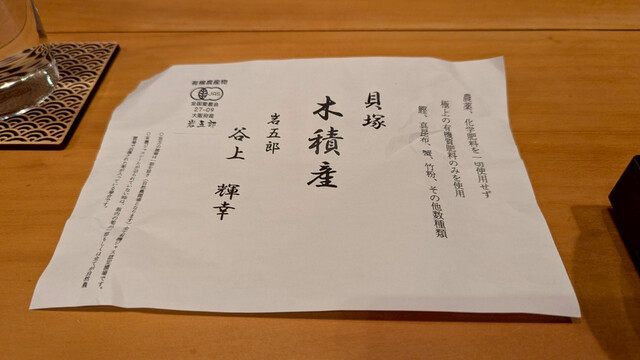 農薬、化学肥料を一切使用せず
極上の有機質肥料のみを使用
鰹、真昆布、蟹、竹粉、その他数種類
貝塚
木積産
岩五郎
谷上 輝幸
有機農産物
JAS
全国愛農会
27-09
大阪府産
岩五郎